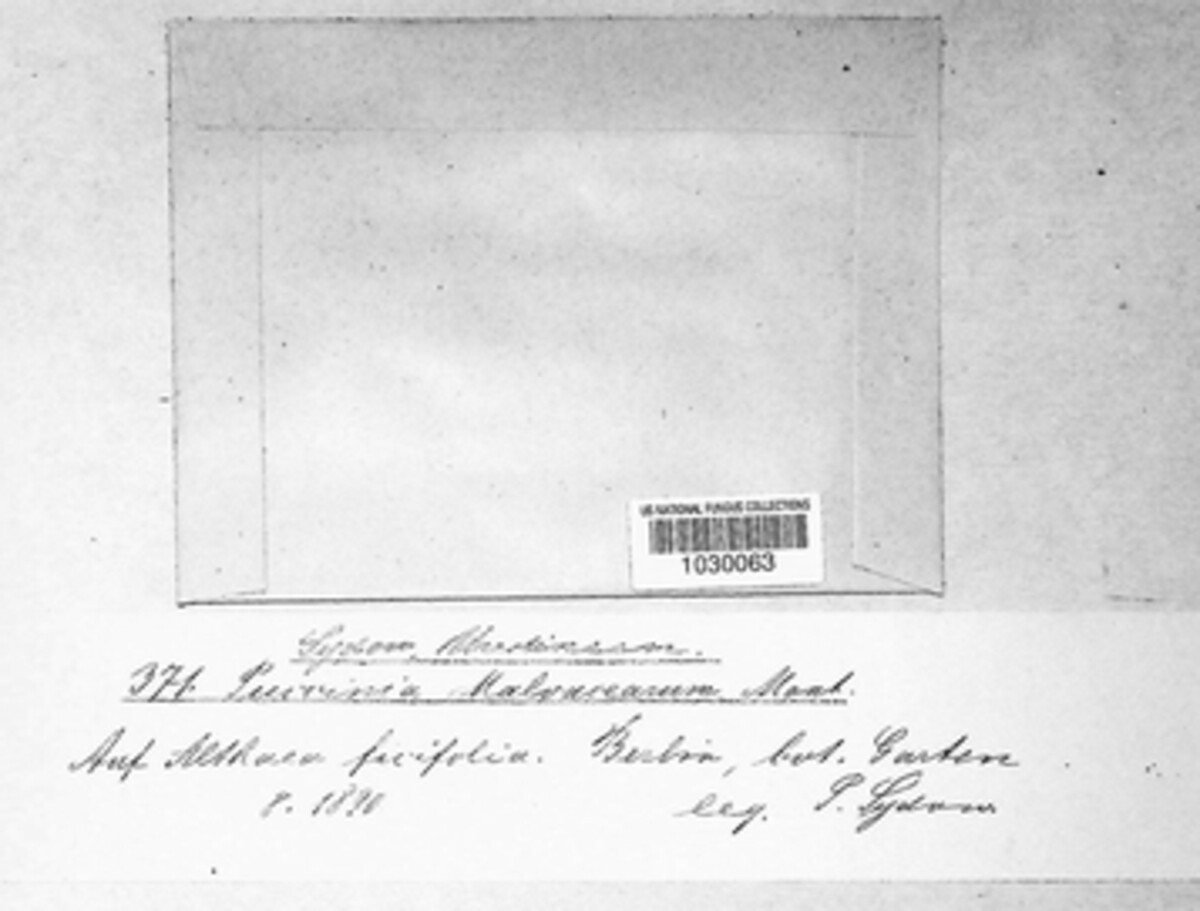 US NATIONAL FUNGUS COLLECTIONS
1030063
Sydow, Uredineen.
371. Puccinia Malvacearum Mont.
Auf Althaea ficifolia. Berlin, bot. Garten
8. 1890 leg. P. Sydow